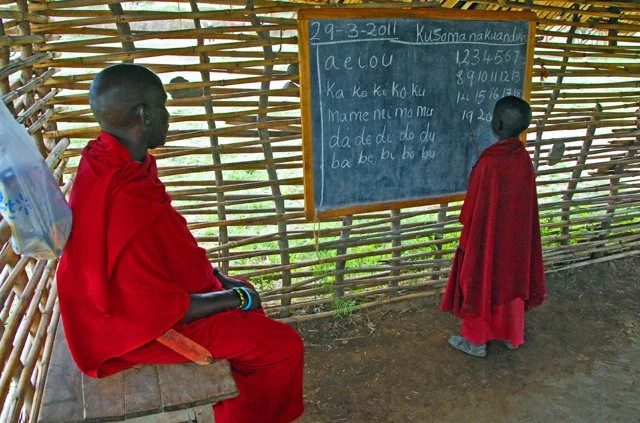 29-3-2011 Kusoma na kuandika
a e i o u 1 2 3 4 5 6 7
8 9 10 11 12 13
ka ke ki ko ku
14 15 16 17 18
ma me mi mo mu 19 20
da de di do du
ba be bi bo bu